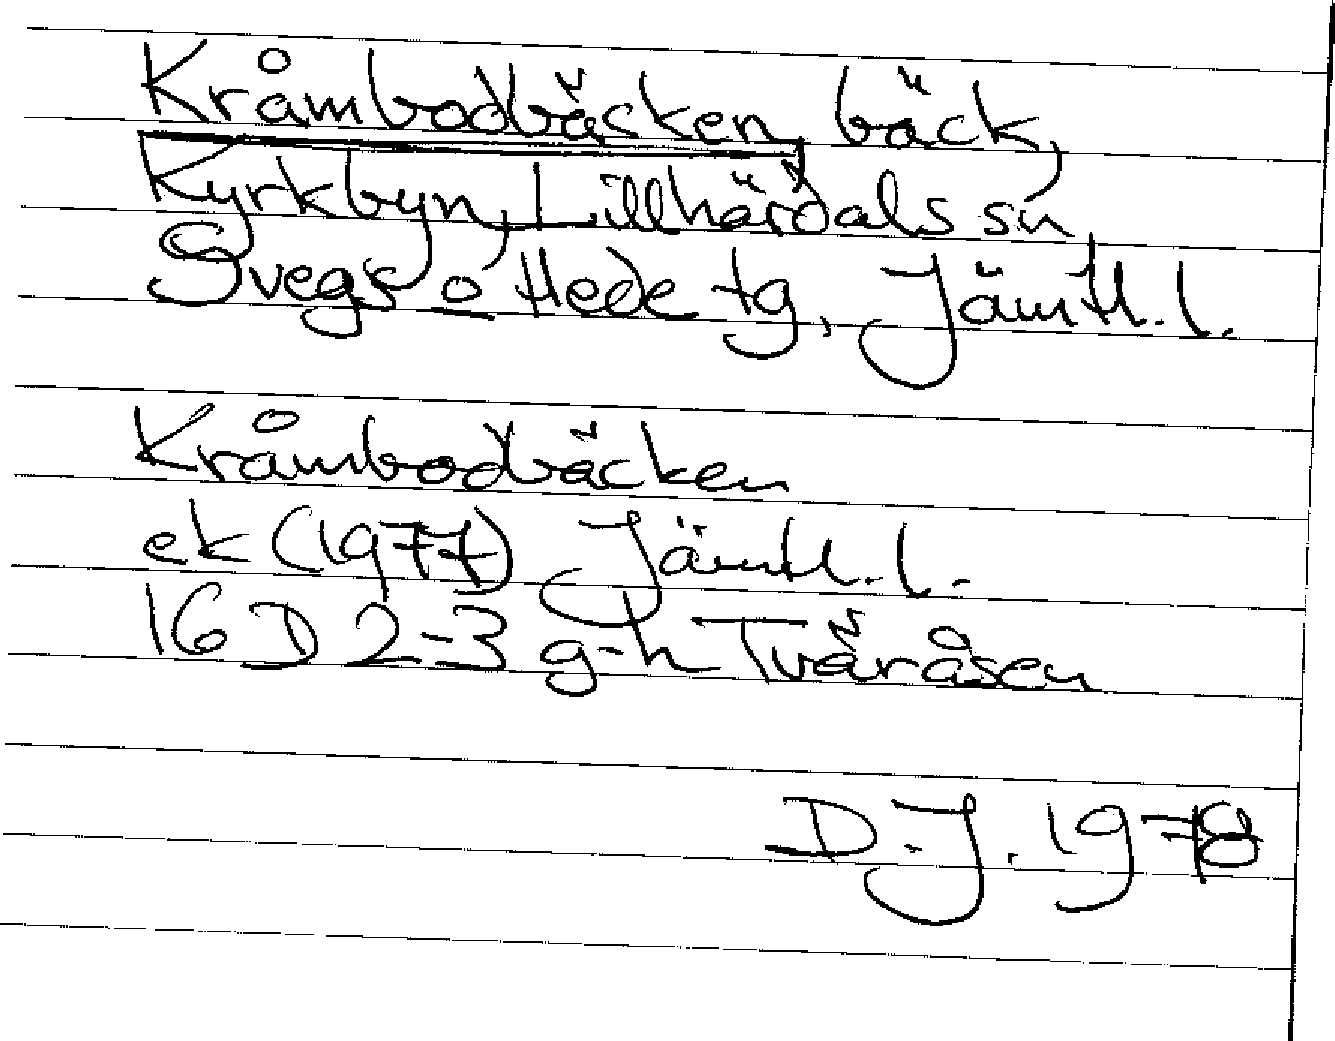 Kråmbodbäcken, bäck,
Kyrkbyn, Lillhärdals sn
Svegs o Hede tg, Jämtl. l.
Kråmbodbäcken
ek (1977) Jämtl. l.
16 D 2-3 g-h Tväråsen
D.J. 1978